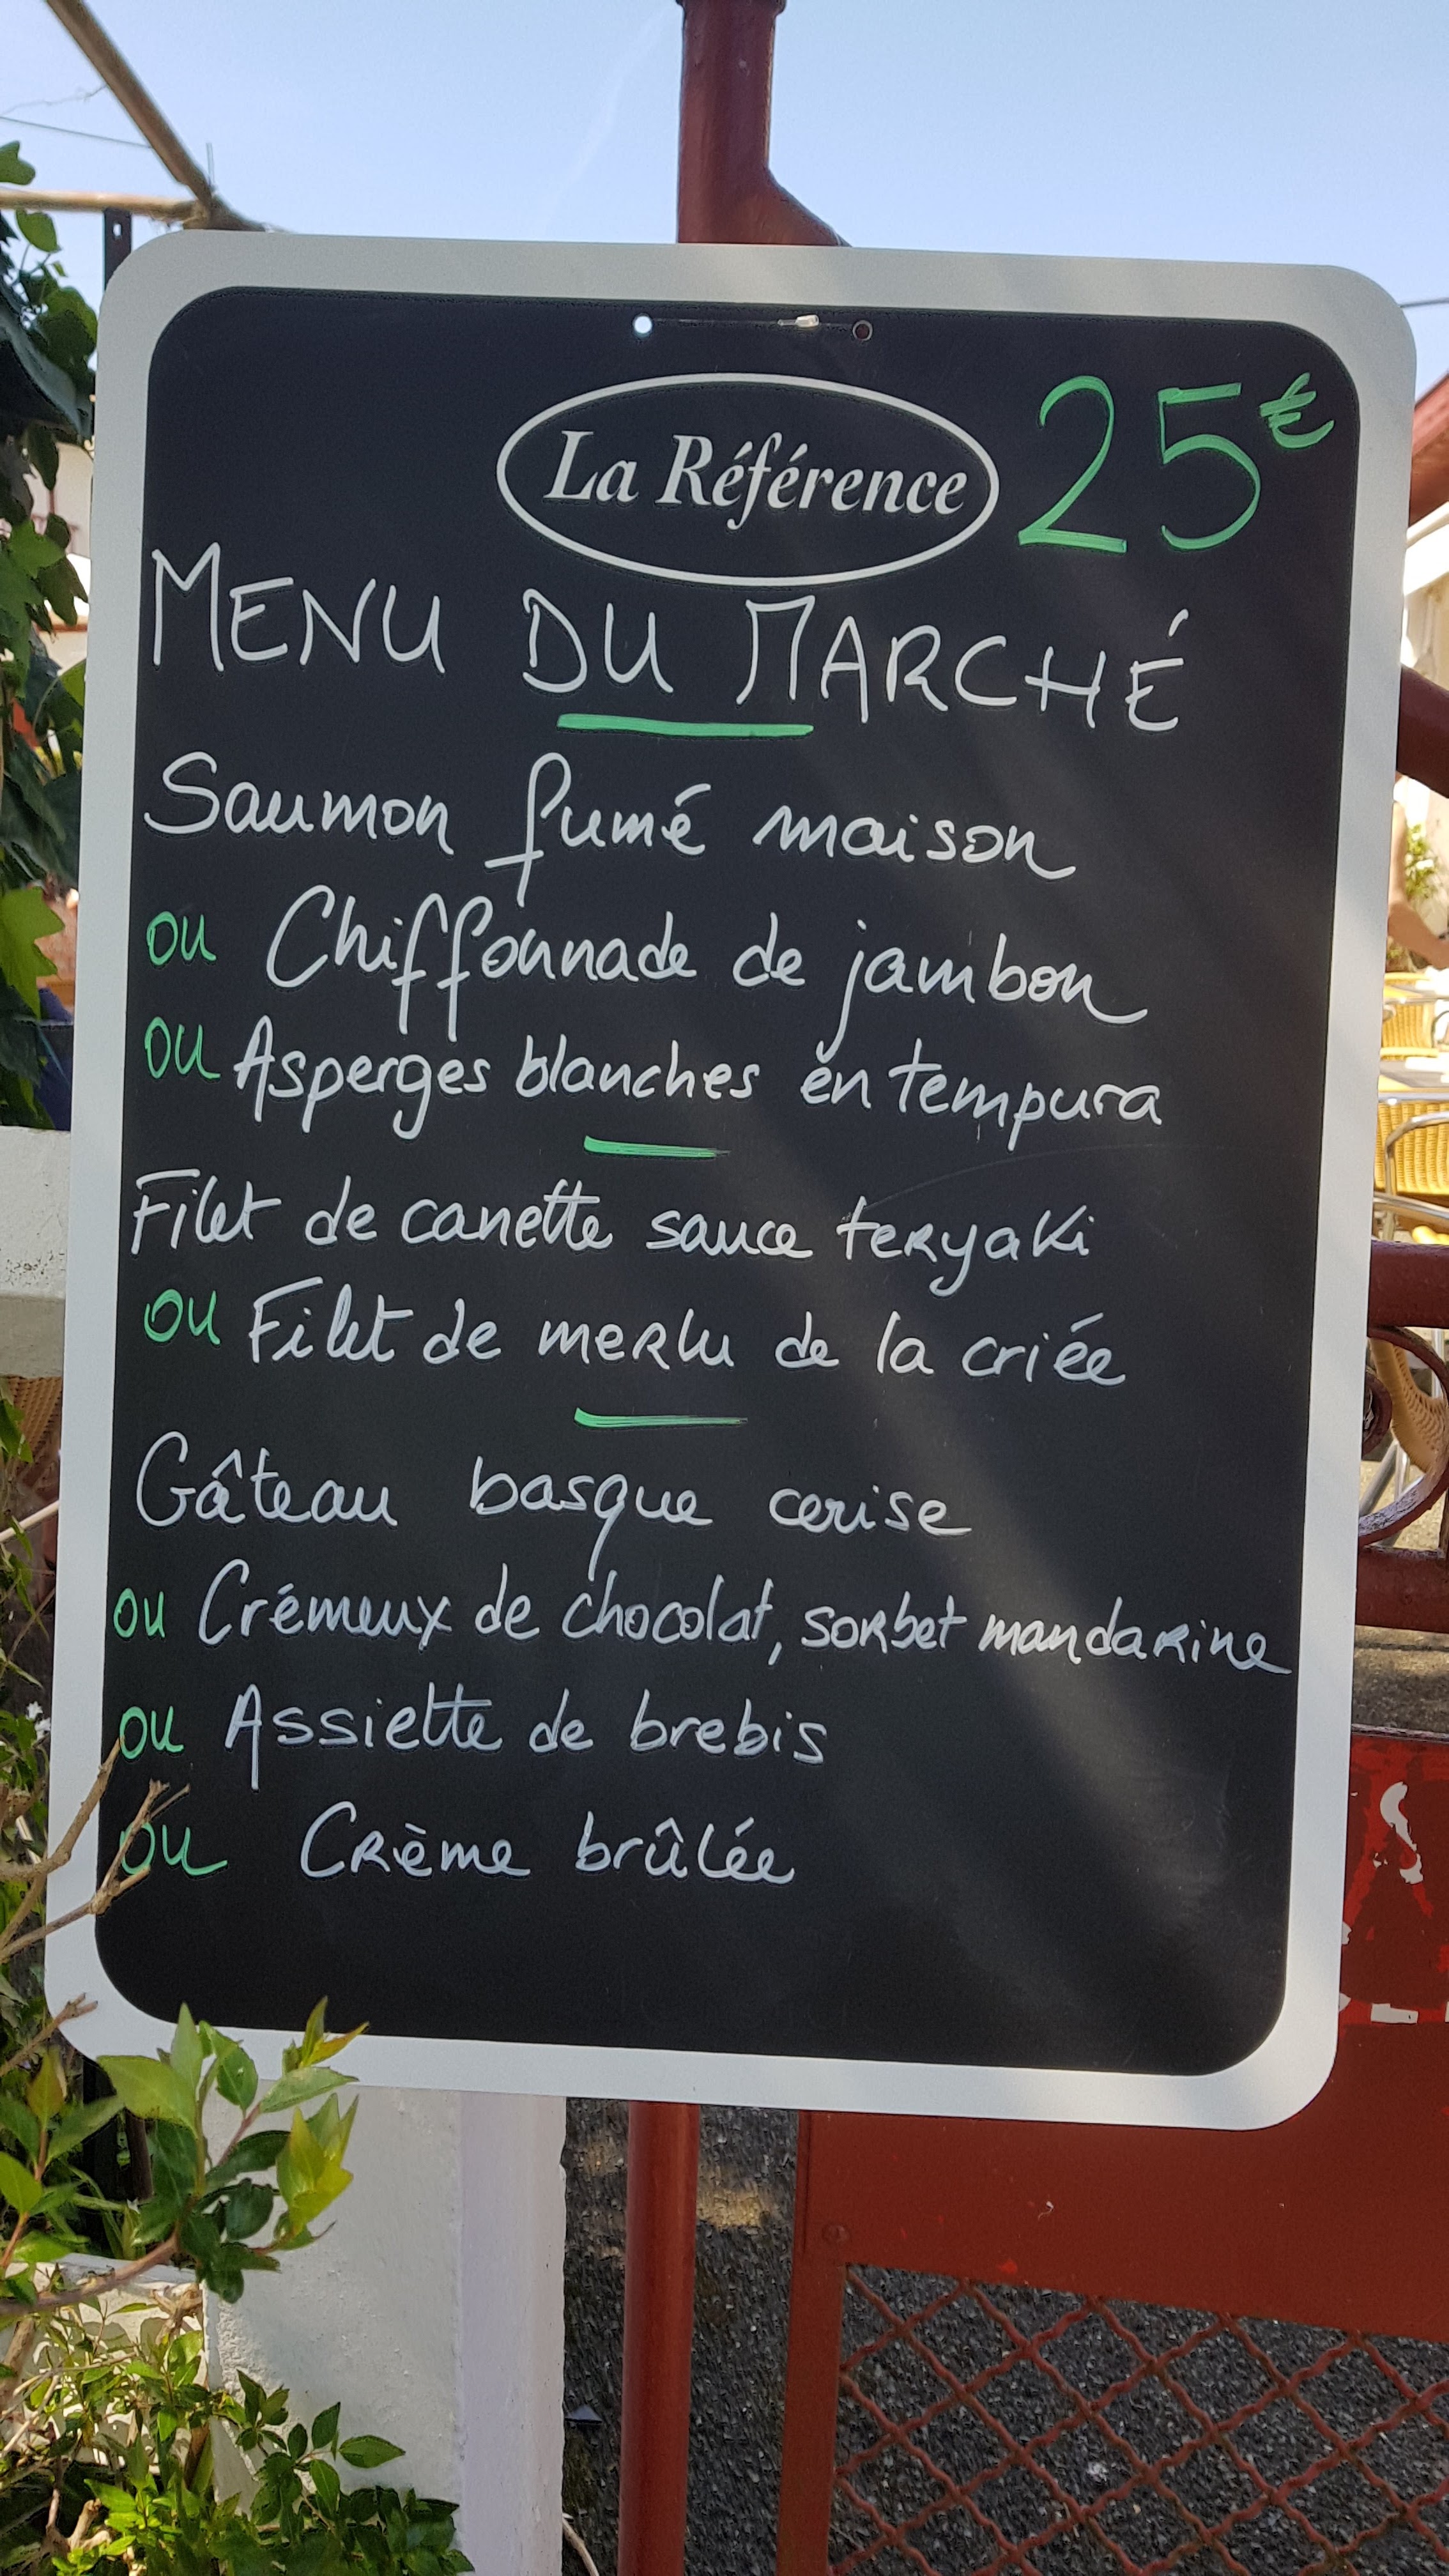 La Référence
25€
MENU DU MARCHÉ
Saumon fumé maison
ou Chiffonnade de jambon
ou Asperges blanches en tempura
Filet de canette sauce teryaki
ou Filet de merlu de la criée
Gâteau basque cerise
ou Crémeux de chocolat, sorbet mandarine
ou Assiette de brebis
ou Crème brûlée